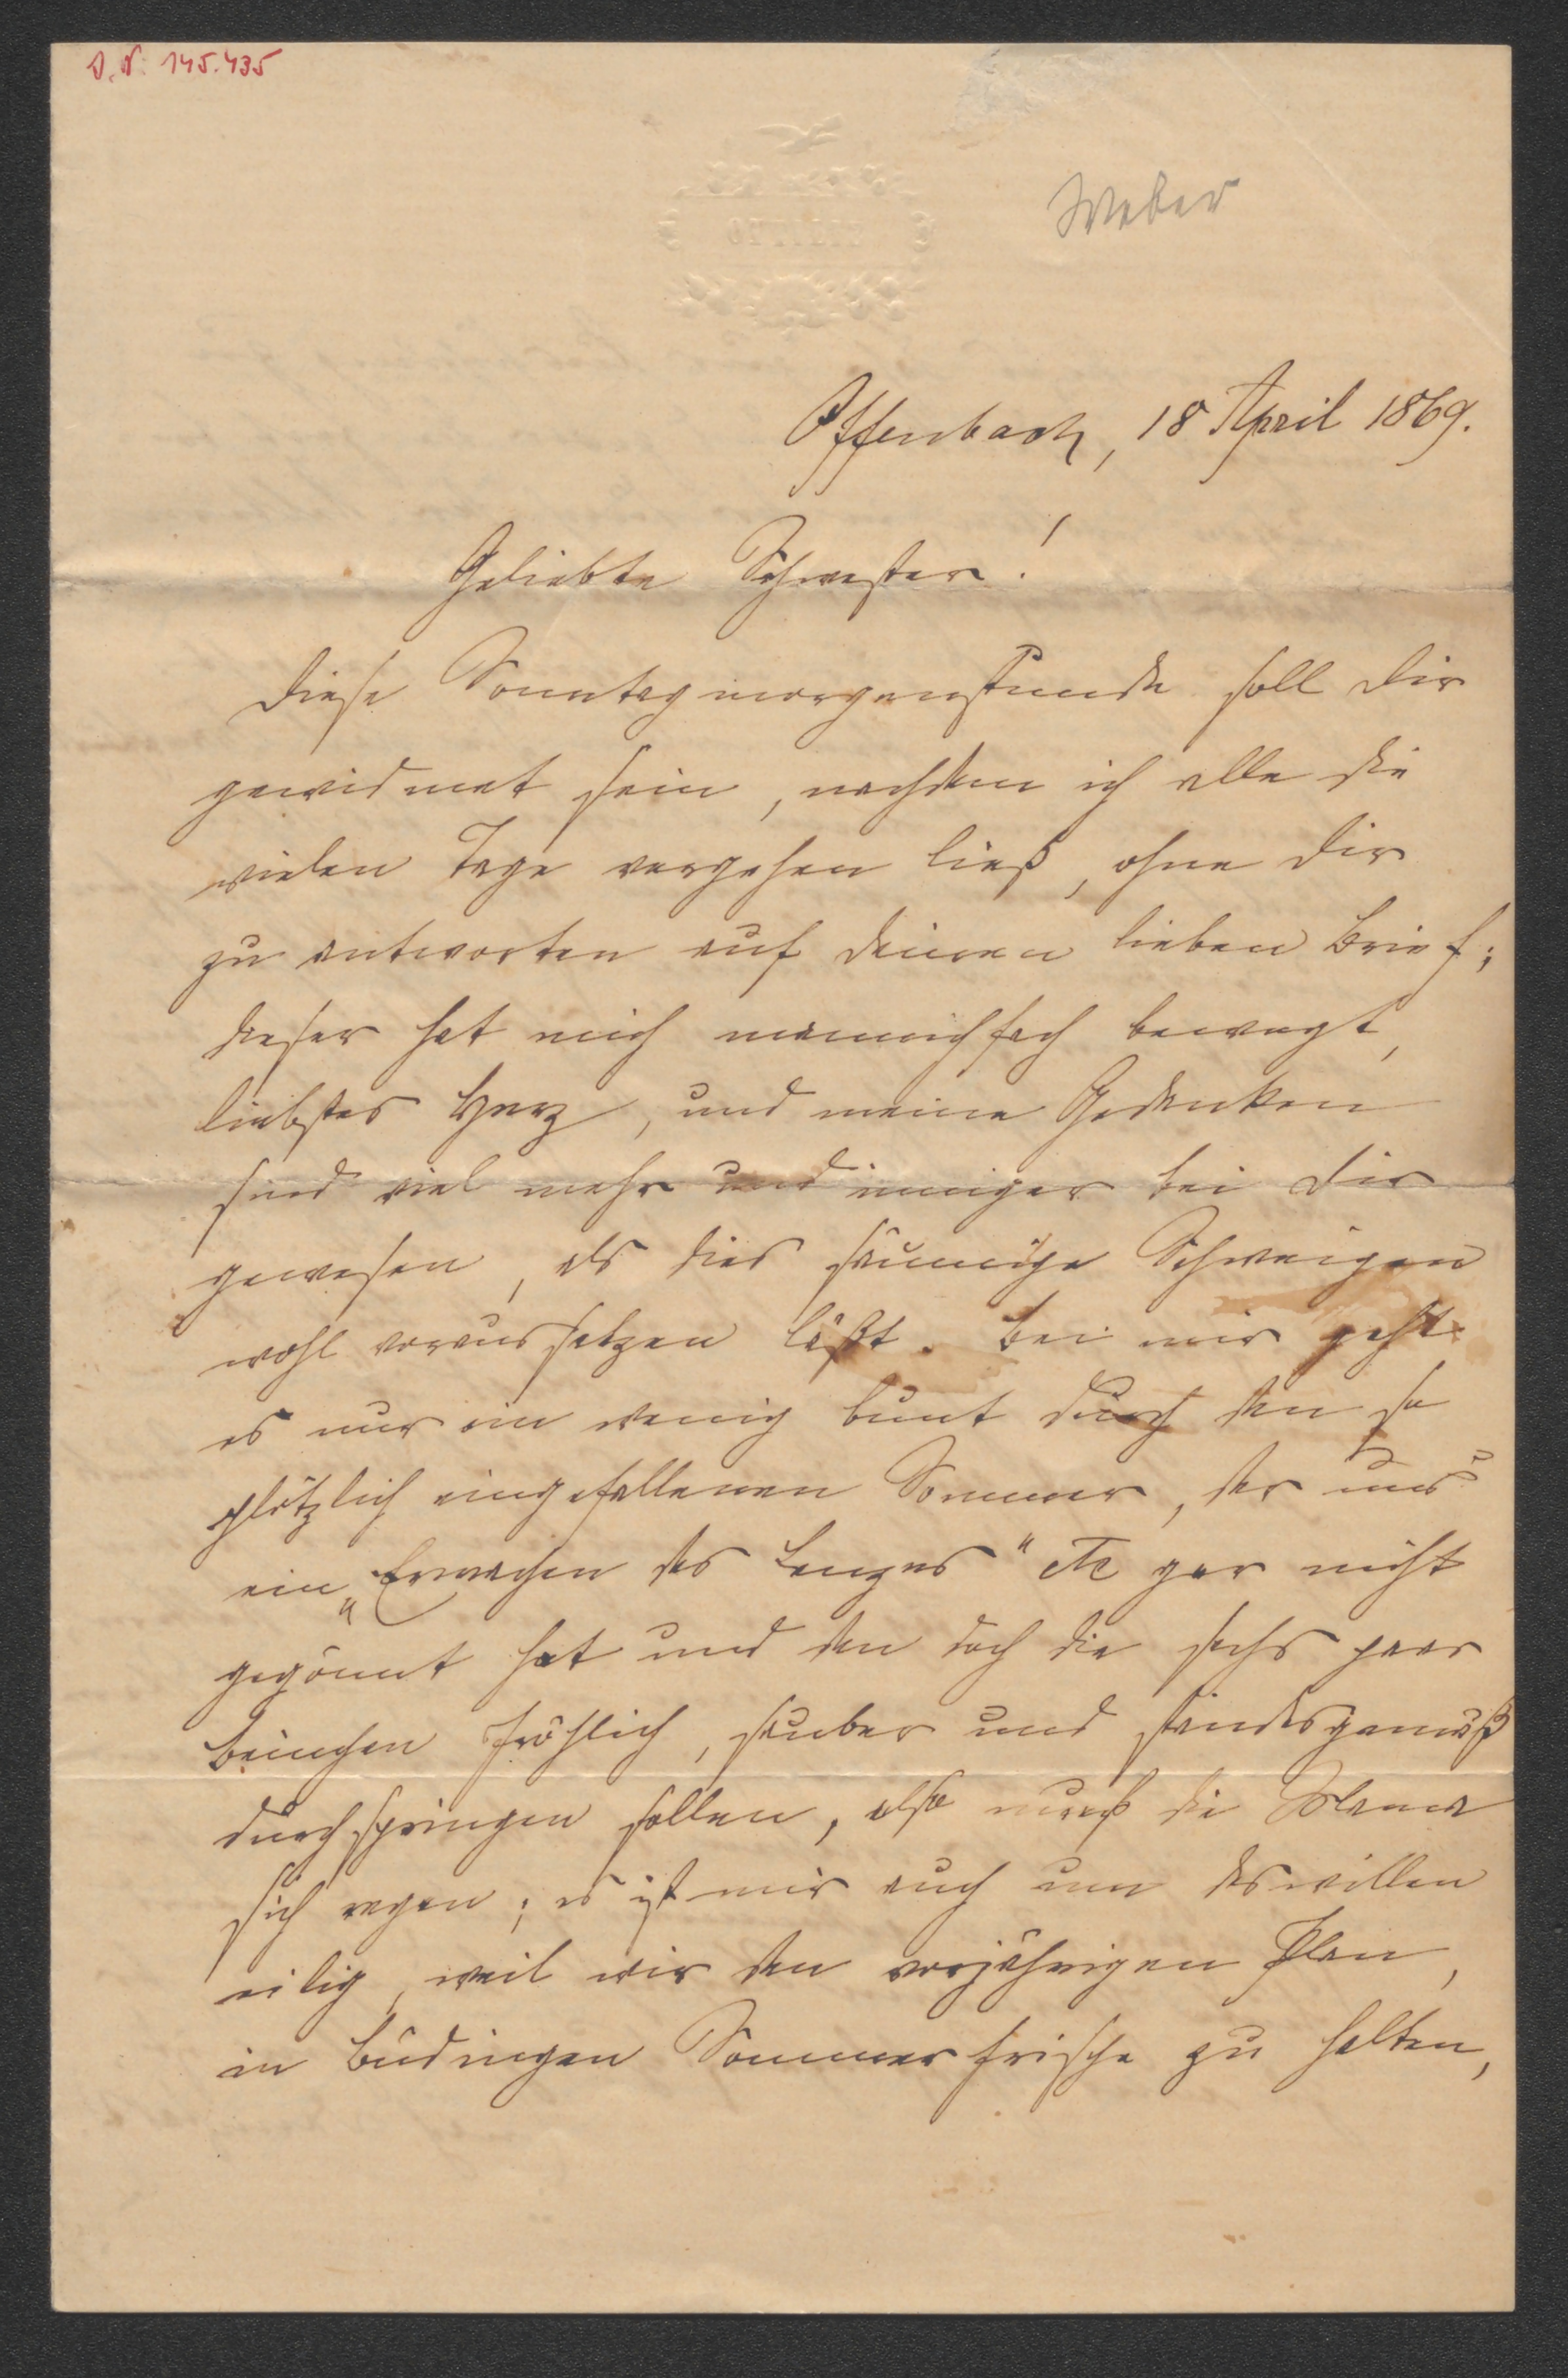 J. N. 145.435
Weber
OTTILIE
Offenbach, 18 April 1869.
Geliebte Schwester!
Diese Sonntagmorgenstunde soll Dir
gewidmet sein, nachdem ich alle die
vielen Tage vergehen ließ, ohne Dir
zu antworten auf Deinen lieben Brief;
dieser hat mich mannichfach bewegt,
liebstes Herz, und meine Gedanken
sind viel mehr und inniger bei Dir
gewesen, als dies säumige Schweigen
wohl voraussetzen läßt. Bei mir geht
es nur ein wenig bunt durch den so
plötzlich eingefallenen Sommer, der uns
ein „Erwachen des Lenzes" etc gar nicht
gegönnt hat und den doch die sechs paar
Beinchen fröhlich, sauber und standesgemäß
durchspringen sollen, also muß die
sich regen; es ist mir auch um deswillen
eilig, weil wir den vorjährigen Plan,
in Büdingen Sommerfrische zu halten,